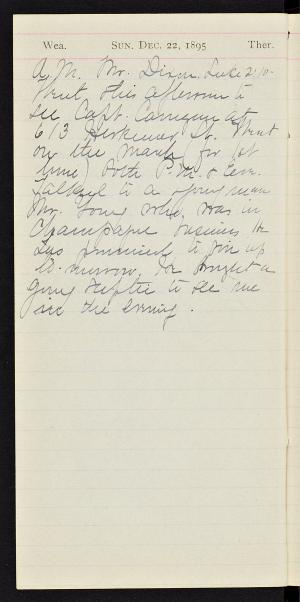 Wea. SUN. DEC. 22, 1895 Ther.
A.M. Mr. Dixon. Luke 2:10-
Went this afternoon to
see Capt. Cameron at
613 Herkimer St. Went
on the march (for 1st
time) both P.M. & Eve.
Talked to a young man
Mr. Young who was in
Champagne business He
has promised to join up
to-morrow. He brought a
young to see me
in the evening.